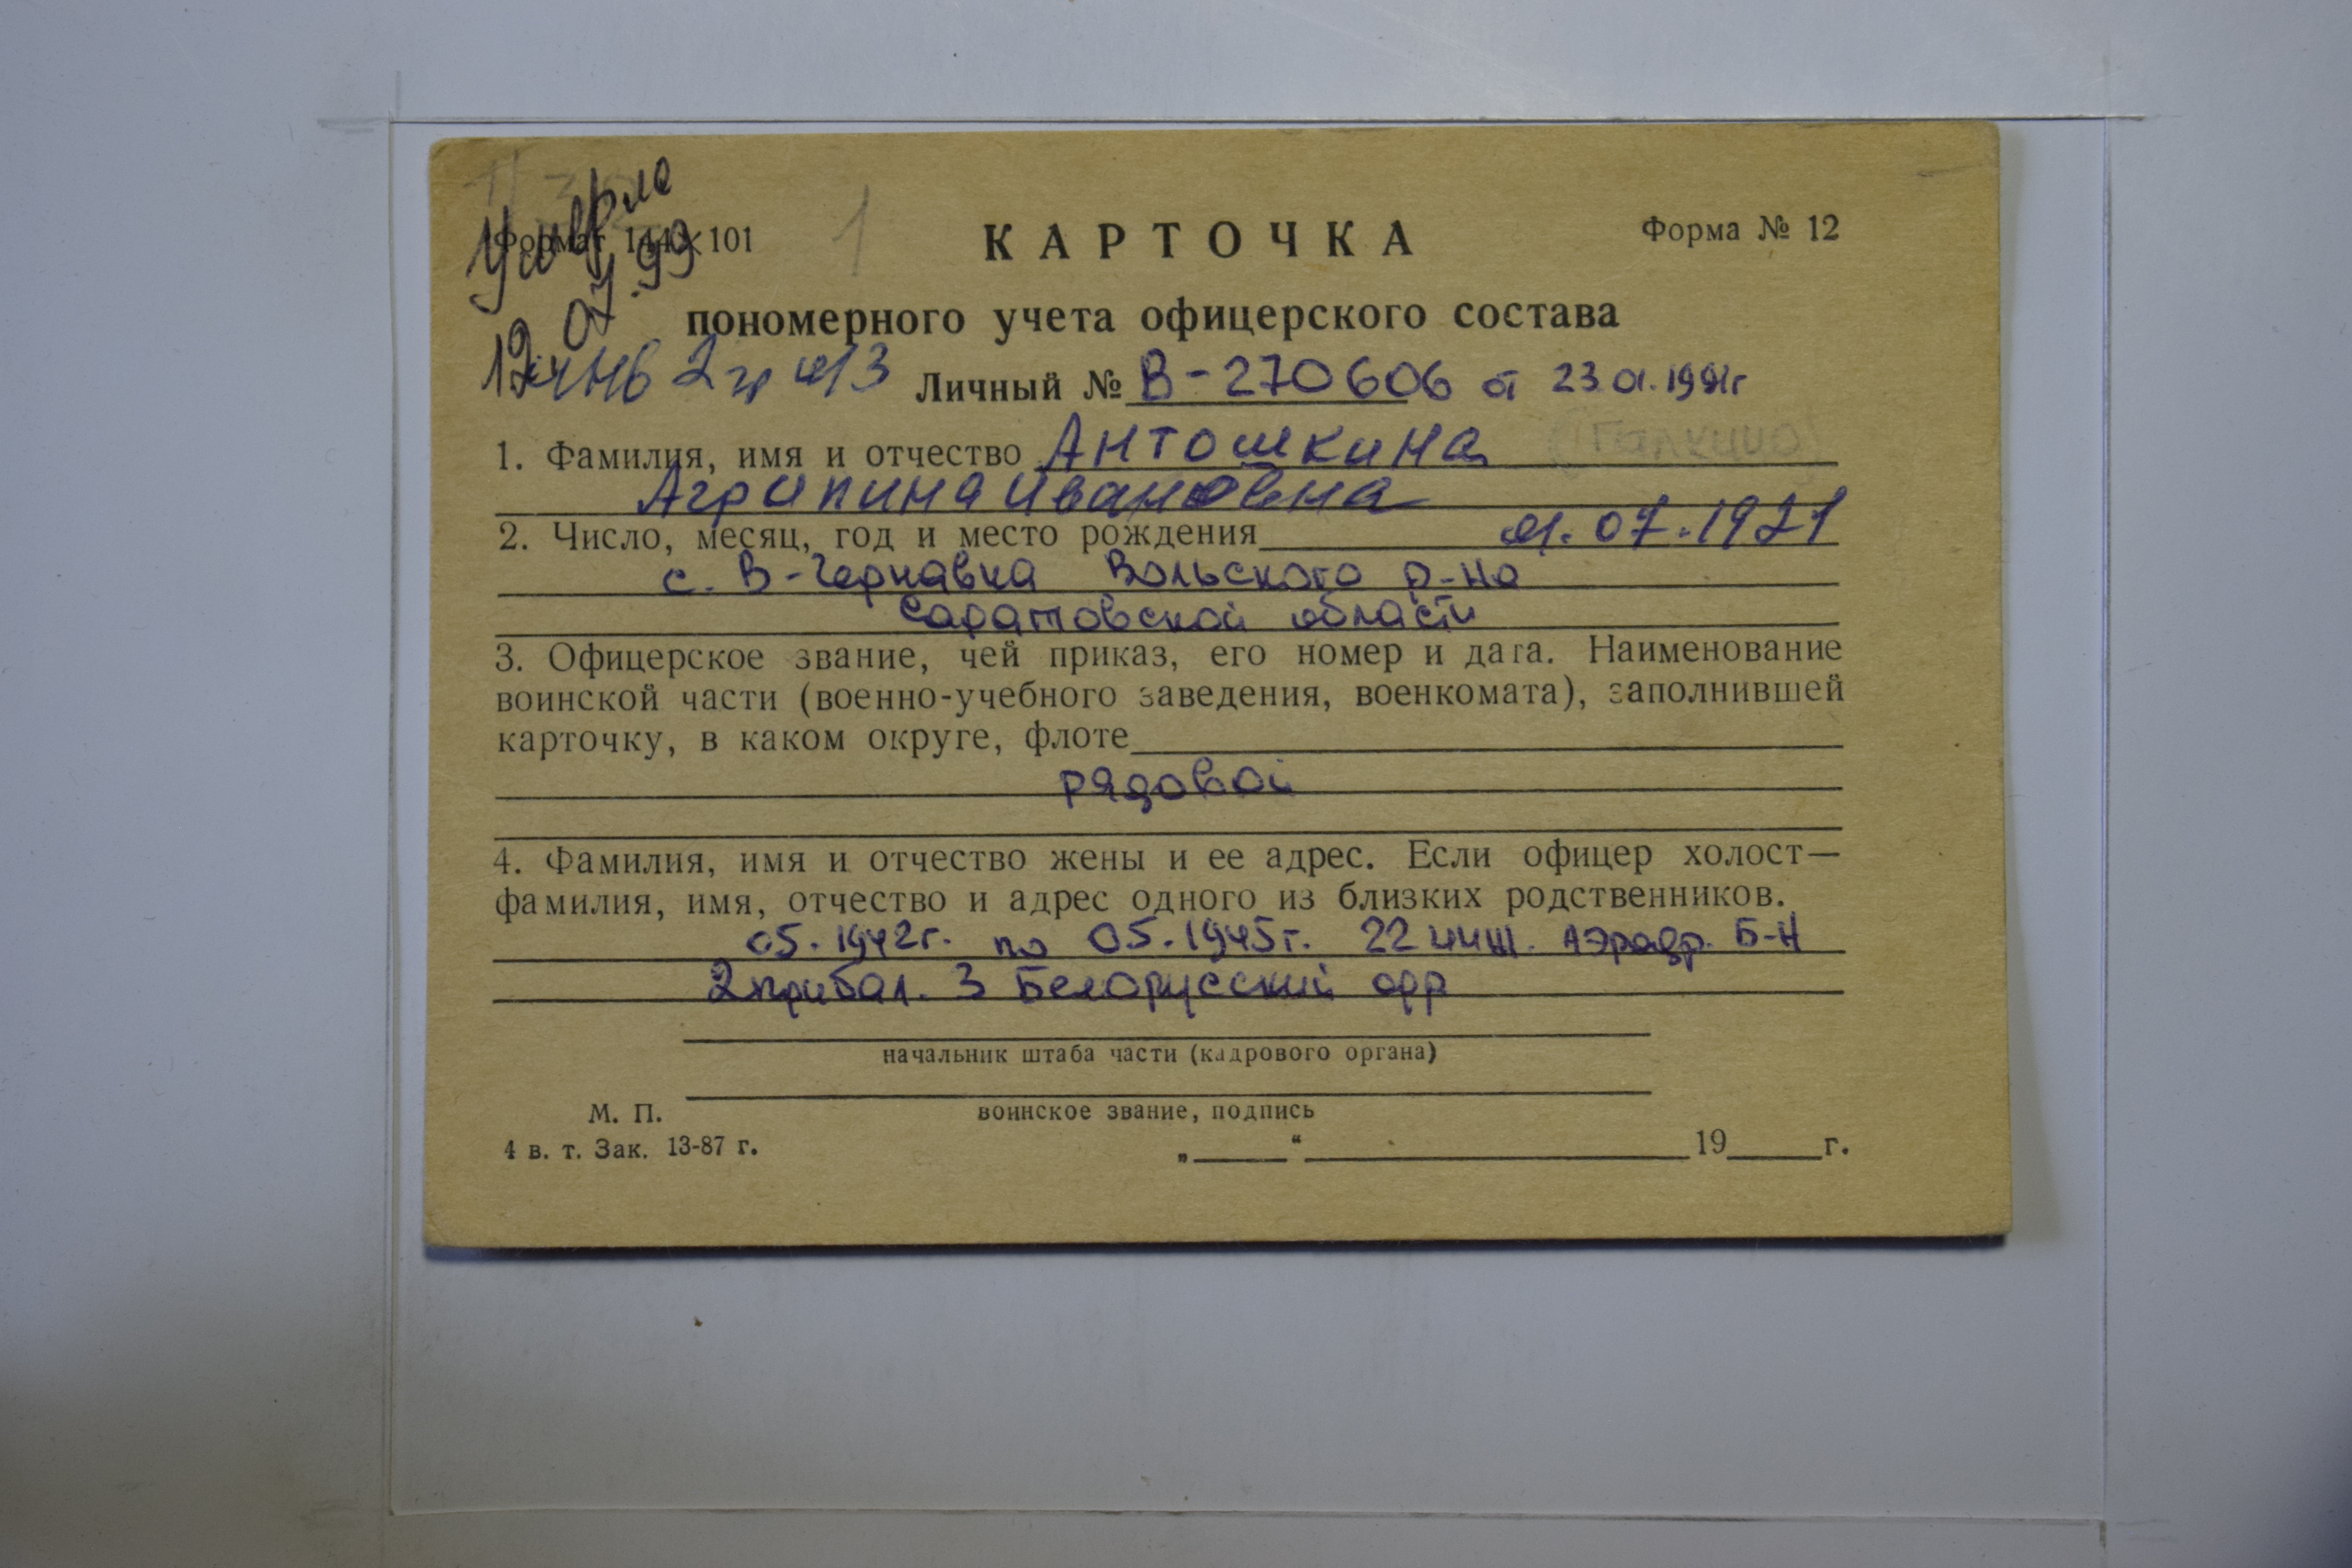 Умерла
12.07.99
Формат 144×101
1
КАРТОЧКА
Форма № 12
пономерного учета офицерского состава
инв 2 гр
Личный № В-270606 от 23.01.1991г
1. Фамилия, имя и отчество Антошкина (Галкина)
Агрипина Ивановна
2. Число, месяц, год и место рождения 01.07.1921
с. В-Чернавка Вольского р-на
Саратовской области
3. Офицерское звание, чей приказ, его номер и дата. Наименование
воинской части (военно-учебного заведения, военкомата), заполнившей
карточку, в каком округе, флоте
рядовой
4. Фамилия, имя и отчество жены и ее адрес. Если офицер холост—
фамилия, имя, отчество и адрес одного из близких родственников.
05.1942г. по 05.1945г. 22 инж. Аэродр. Б-Н
2 прибал. 3 Белорусский фр
начальник штаба части (кадрового органа)
М. П.
воинское звание, подпись
4 в. т. Зак. 13-87 г.
„ “ 19 г.